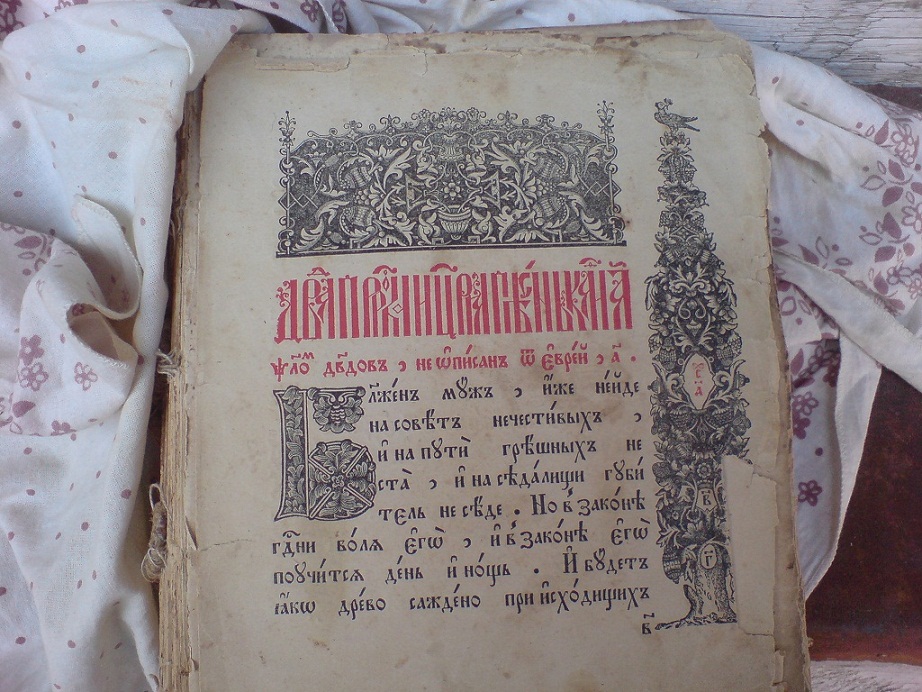 ѱлоⷨ дв҃довъ , не ѡ҆писан ѿ є҆вре́й , а҃ .
Бл҃же́нъ мужъ , и҆́же не и҆́де
на совѣ́тъ нечести́выхъ ,
и҆ на путѝ грѣ́шныхъ не
ста̀ , и҆ на сѣда́лищи губи́
тель не сѣ́де . Но в̾ зако́нѣ
гдⷭ҇ни во́ля є҆гѡ̀ , и҆ в̾ зако́нѣ є҆гѡ̀
поучи́тся де́нь и҆ но́щь . И҆ бу́детъ
ꙗ҆́кѡ дре́во сажде́но при и҆схо́дищихъ
в҃
г҃